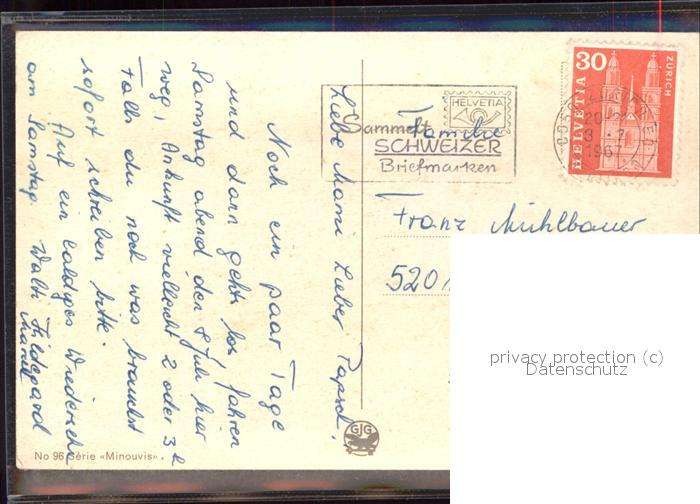 Liebe Mami Lieber Papsch!
Noch ein paar Tage
und dann gehts los fahren
Samstag abend den 8 Juli hier
weg, Ankunft vielleicht 2 oder 3 h
Falls du noch was brauchst
sofort schreiben bitte.
Auf ein baldiges Wiedersehn
am Samstag Walti Hildegard
Sammelt
SCHWEIZER
Briefmarken
HELVETIA
30
HELVETIA
ZÜRICH
1967
Familie
Franz Mühlbauer
520
privacy protection (c)
Datenschutz
GJG
No 96 Série «Minouvis».